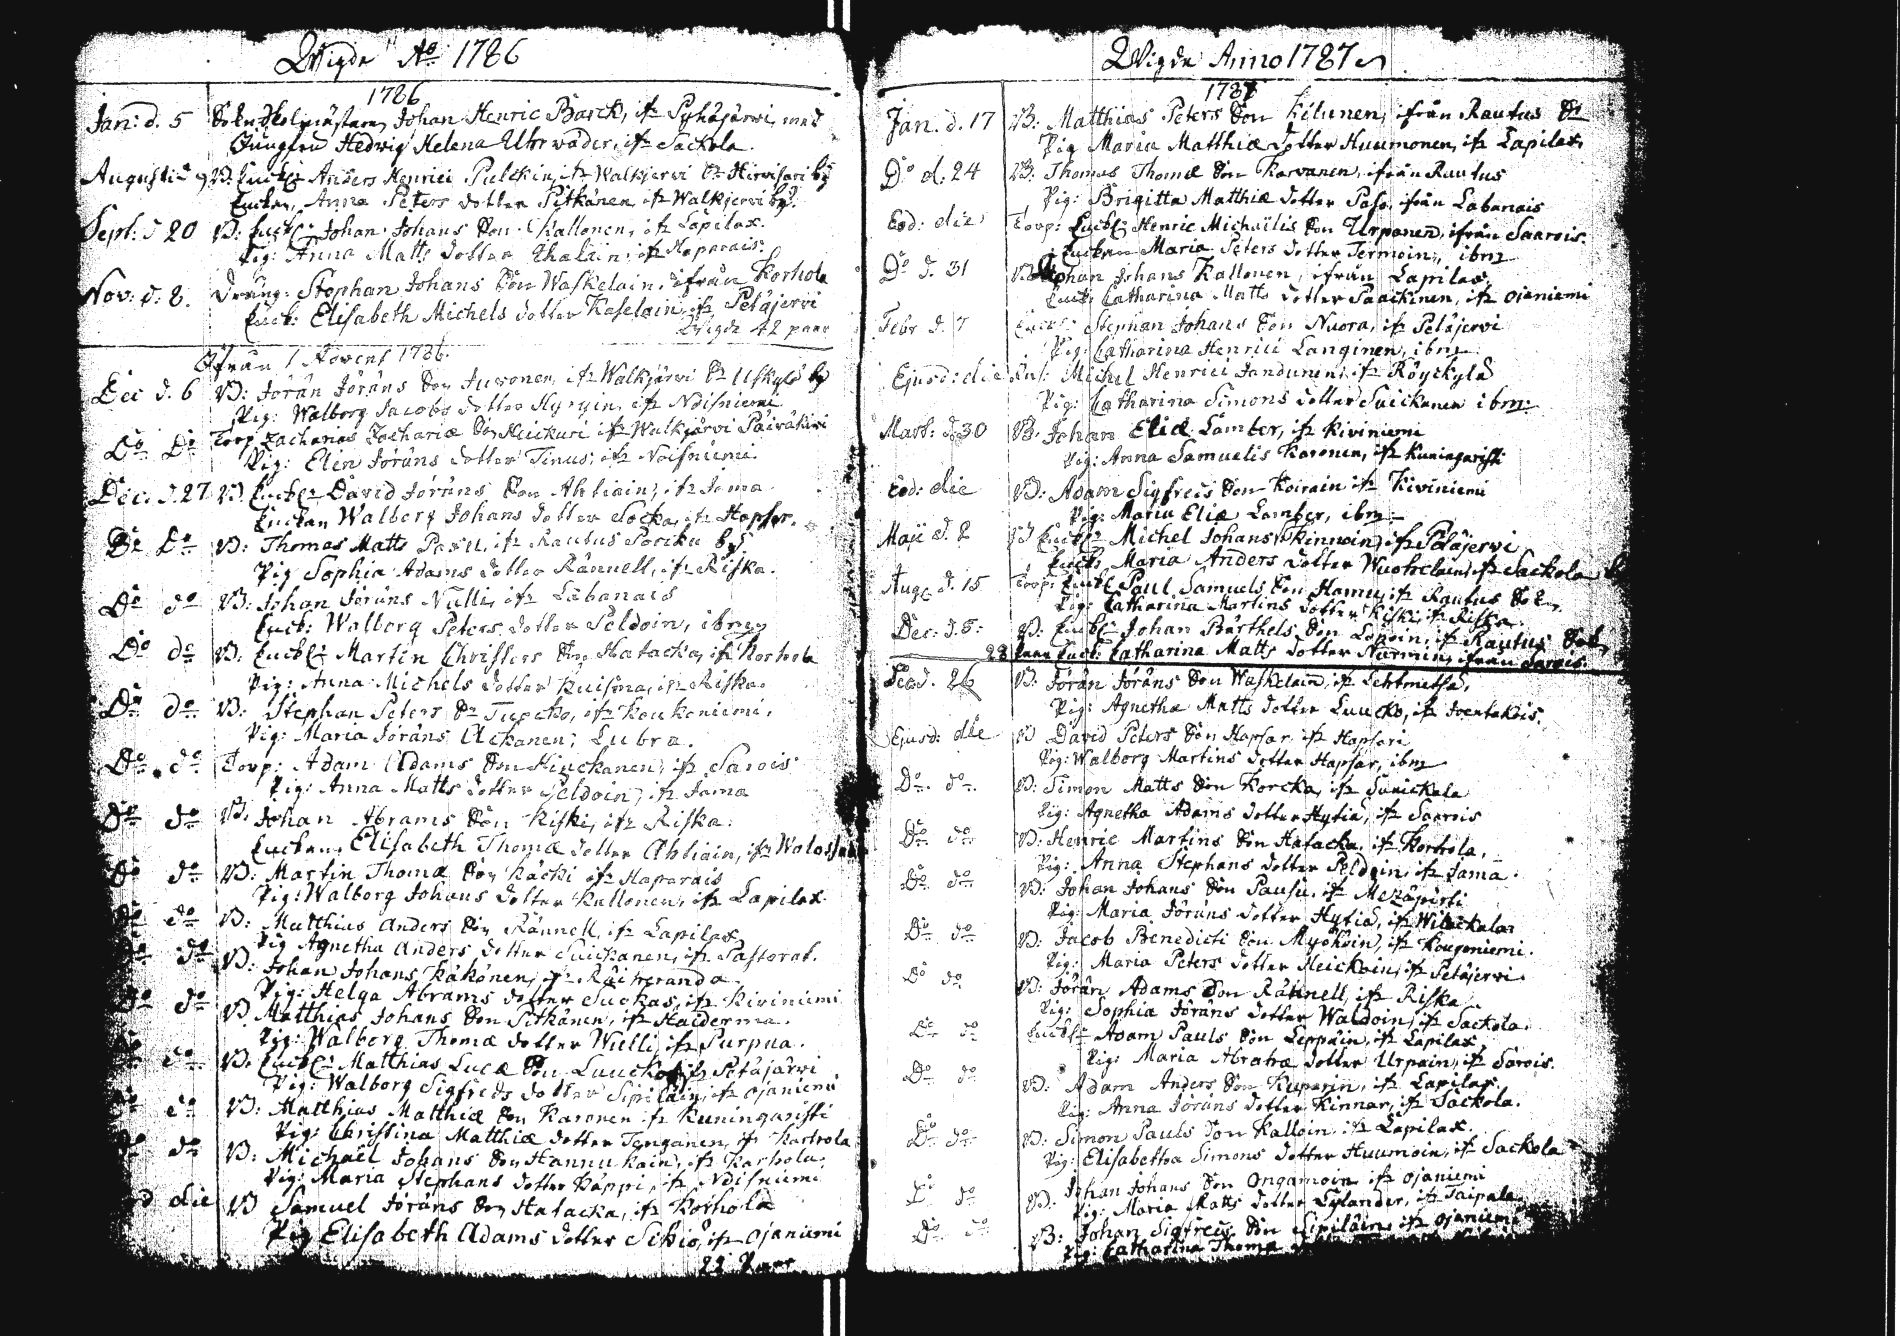 Wigde Aō 1786
1786
Jan: d. 5 Johan Henric Barck, ifr Pyhäjärvi, med
Jungfru Hedwig Helena Uhrwäder, ifr Sackola.
Augusti d 9 B: Enckl: Anders Henrici Pulckin, ifr Walkjervi Sn Hirvisari by
Enckan, Anna Peters dotter Pitkänen ifr Walkjervi by.
Sept: d 20 B: Enckl: Johan Johans Son Kallonen, ifr Lapilax.
Pig: Anna Matts dotter ifr Haparais.
Nov: d. 8. Dräng: Stephan Johans Son Waskelain, ifrån Korhola
Enck: Elisabeth Michels dotter Kaselain, ifr Petäjervi
Wigde 42 paar
Ifrån 1 Novemb 1786.
Dec d. 6 B: Jöran Jörans Son Juvonen, ifr Walkjärvi Sn Uskylä by
Pig: Walborg Jacobs dotter Hyryin, ifr Noisniemi
Do Do Torp Zacharias Zachariæ Son Huickuri ifr Walkjärvi Päiväkivi
Pig: Elin Jörans dotter Tinus, ifr Noisniemi.
Dec: d. 27 B. Enckl: David Jörans Son Ahtiain, ifr Jama
Enckan Walborg Johans dotter Socka, ifr Hapsar.
Do Do B: Thomas Matts Pasu, ifr Rautus Sorcku by.
Pig Sophia Adams dotter Rännell, ifr Riska.
Do do B: Johan Jörans Nulli, ifr Labanais
Enck: Walborg Peters dotter Peldoin, ibm
Do do B: Enckl: Martin Christers Son Hatacka, ifr Korhola
Pig: Anna Michels dotter Kuisma, ifr Riska.
Do do B: Stephan Peters Sn Tuocko, ifr Koukoniemi.
Pig: Maria Jörans Ackanen, Lubra.
Do do Torp: Adam Adams Son Hinckanen, ifr Sarois
Pig: Anna Matts dotter Peldoin, ifr Jama
Do do B. Johan Abrams Son Riski, ifr Riska.
Enckan, Elisabeth Thomæ dotter Ahtiain, ifr
Do do B: Martin Thomæ Son Räcki ifr Haparais
Pig: Walborg Johans dotter Kallonen, ifr Lapilax.
do B: Matthias Anders Son Rännell, ifr Lapilax
Pig Agnetha Anders dotter Suickanen, ifr Pastorat.
do B: Johan Johans Käkönen, ifr Räiseranda.
Pig: Helga Abrams dotter Suckas, ifr Kiviniemi
Do do B Matthias Johans Son Pitkänen, ifr Haiderma.
Pig: Walborg Thomæ dotter Wulli, ifr Purpua.
do B: Enckl: Matthias Lucæ Son Luucko, ifr Petäjärvi
Pig: Walborg Sigfreds dotter Sipiläin, ifr Ojaniemi
do B: Matthias Matthiæ Son Karonen ifr Kuningaristi
Pig: Christina Matthiæ dotter Tenganen, ifr Korhola
do B: Michael Johans Son Hannukain, ifr Korhola,
Pig: Maria Stephans dotter Käppi, ifr Noisniemi
die B Samuel Jörans Son Hatacka, ifr Korhola
Pig Elisabeth Adams dotter Sihvo, ifr Ojaniemi
22 Paar
Wigde Anno 1787
1787
Jan. d. 17 B: Matthias Peters Son Kilunen, ifrån Rautus Sn
Pig Maria Matthiæ dotter Huumonen, ifr Lapilax,
Do d. 24 B: Thomas Thomæ Son Karvanen, ifrån Rautus
Pig: Brigitta Matthiæ dotter Paso, ifrån Labanais
Eod: die Torp: Enckl: Henric Michaëlis Son Urponen, ifrån Saarois.
Enckan Maria Peters dotter Termoin, ibm
Do d. 31 B Johan Johans Kallonen, ifrån Lapilax,
Enck: Catharina Matts dotter Paackinen, ifr Ojaniemi
Febr d. 7 Enckl: Stephan Johans Son Nuora, ifr Petäjervi
Pig: Catharina Henrici Langinen, ibm
Ejusd: die Michel Henrici Jandunen, ifr Röyckylä
Pig: Catharina Simons dotter Suickanen ibm:
Mart: d. 30 B. Johan Eliæ Lamber, ifr Kiviniemi
Pig: Anna Samuelis Karonen, ifr Kuningaristi
Eod: die B: Adam Sigfreds Son Koirain ifr Kiviniemi
Pig: Maria Eliæ Lamber, ibm
Maji d. 2 B Enckl: Michel Johans Kinnoin, ifr Petäjervi
Enck: Maria Anders dotter Wuohelain, ifr Sackola
Aug: d. 15 Torp: Enckl Paul Samuels Son Hamu, ifr Rautus Sokn
Pig: Catharina Martins dotter Kiski, ifr Riska.
Dec: d. 5: B: Enckl: Johan Barthels Son Lapoin, ifr Rautus Sok
28 paar Enck: Catharina Matts dotter Nurmin, ifrån Sarois.
Dec d. 26 B: Jöran Jörans Son Waskelain, ifr Lehtmetsä.
Pig: Agnetha Matts dotter Luucko, ifr
Ejusd: die B David Peters Son Hapsar ifr Hapsari
Pig: Walborg Martins dotter Hapsar, ibm
Do. do. B: Simon Matts Son Korcka, ifr Sunickala
Pig: Agnetha Adams dotter Hytiä, ifr Saarois
Do do B: Henric Martins Son Hatacka, ifr Korhola,
Pig: Anna Stephans dotter Peldoin, ifr Jama.
Do do B: Johan Johans Son Pausu, ifr Metzäpirti
Pig: Maria Jörans dotter Hytiä, ifr Wilackala
Do do B: Jacob Benedicti Son Myöhäin, ifr Kougoniemi.
Pig: Maria Peters dotter Meickoin, ifr Petäjervi
Do do B: Jöran Adams Son Rännell, ifr Riska
Pig: Sophia Jörans dotter Waldoin, ifr Sackola.
Do do Enckl: Adam Pauls Son Leppäin, ifr Lapilax,
Pig: Maria Abrahæ dotter Urpain, ifr Sarois.
Do do B: Adam Anders Son Kuparin, ifr Lapilax,
Pig: Anna Jörans dotter Kinnar, ifr Sackola.
Do do B: Simon Pauls Son Kalloin ifr Lapilax.
Pig: Elisabetha Simons dotter Huumoin, ifr Sackola
Do do B: Johan Johans Son Ongamoin ifr Ojaniemi
Pig: Maria Matts dotter Cylander, ifr Taipale
Do do B: Johan Sigfreds Son Sipiläin, ifr Ojaniemi
Pig: Catharina Thomæ